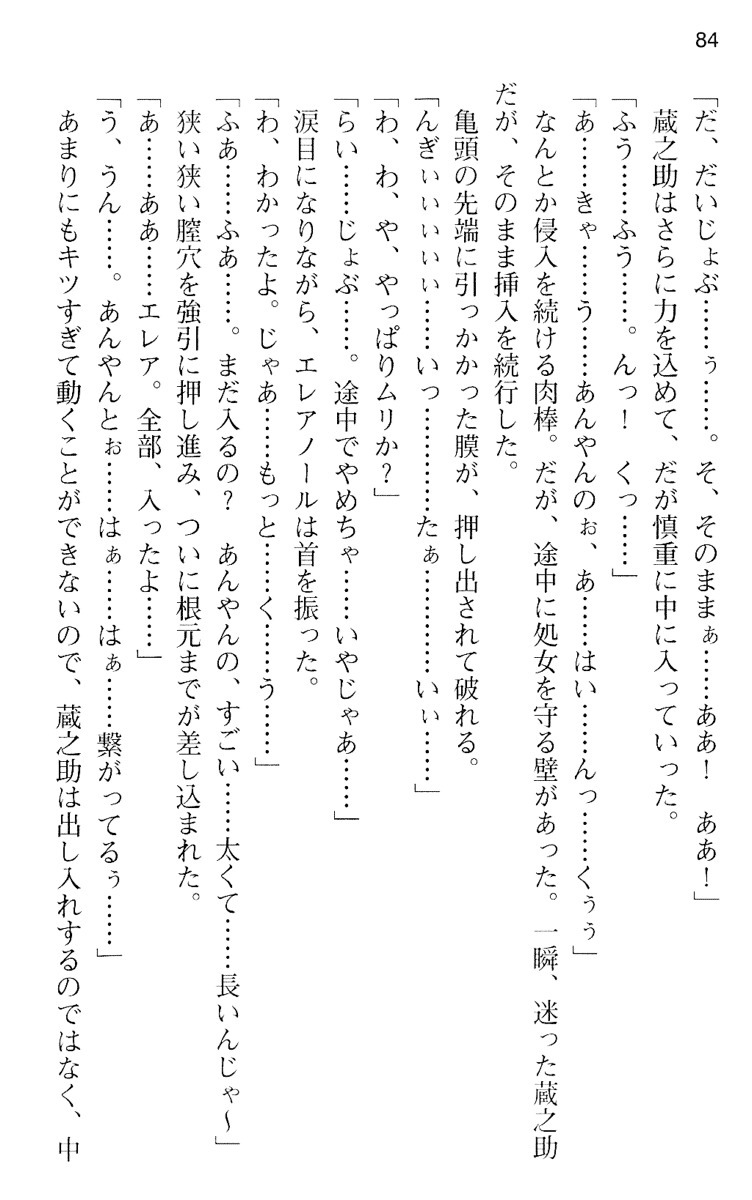 84
「だ、だいじょぶ……ぅ……。そ、そのままぁ……ああ！　ああ！」
蔵之助はさらに力を込めて、だが慎重に中に入っていった。
「ふう……ふう……。んっ！　くっ……」
「あ……きゃ……う……あんやんのぉ、あ……はい……んっ……くぅぅ」
なんとか侵入を続ける肉棒。だが、途中に処女を守る壁があった。一瞬、迷った蔵之助
だが、そのまま挿入を続行した。
亀頭の先端に引っかかった膜が、押し出されて破れる。
「んぎぃぃぃぃぃ……いっ…………たぁ…………いぃ……」
「わ、わ、や、やっぱりムリか？」
「らい……じょぶ……。途中でやめちゃ……いやじゃあ……」
涙目になりながら、エレアノールは首を振った。
「わ、わかったよ。じゃあ……もっと……く……う……」
「ふぁ……ふぁ……。まだ入るの？　あんやんの、すごい……太くて……長いんじゃ～」
狭い狭い膣穴を強引に押し進み、ついに根元までが差し込まれた。
「あ……ああ……エレア。全部、入ったよ……」
「う、うん……。あんやんとぉ……はぁ……はぁ……繋がってるぅ……」
あまりにもキツすぎて動くことができないので、蔵之助は出し入れするのではなく、中